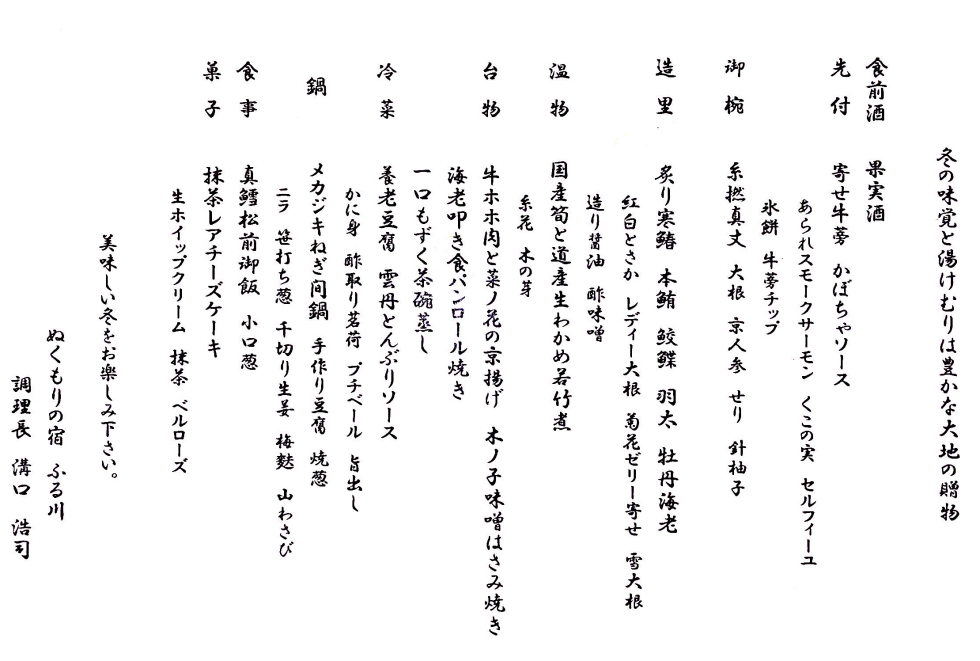 冬の味覚と湯けむりは豊かな大地の贈物
食前酒 果実酒
先付 寄せ牛蒡 かぼちゃソース
あられスモークサーモン くこの実 セルフィーユ
氷餅 牛蒡チップ
御椀 糸撚真丈 大根 京人参 せり 針柚子
造里 炙り寒鰆 本鮪 鮫鰈 羽太 牡丹海老
紅白とさか レディー大根 菊花ゼリー寄せ 雪大根
造り醤油 酢味噌
温物 国産筍と道産生わかめ若竹煮
糸花 木の芽
台物 牛ホホ肉と菜ノ花の京揚げ 木ノ子味噌はさみ焼き
海老叩き食パンロール焼き
一口もずく茶碗蒸し
冷菜 養老豆腐 雲丹とんぶりソース
かに身 酢取り茗荷 プチベール 旨出し
鍋 メカジキねぎ間鍋 手作り豆腐 焼葱
ニラ 笹打ち葱 千切り生姜 梅麩 山わさび
食事 真鱈松前御飯 小口葱
菓子 抹茶レアチーズケーキ
生ホイップクリーム 抹茶 ベルローズ
美味しい冬をお楽しみ下さい。
ぬくもりの宿 ふる川
調理長 溝口 浩司